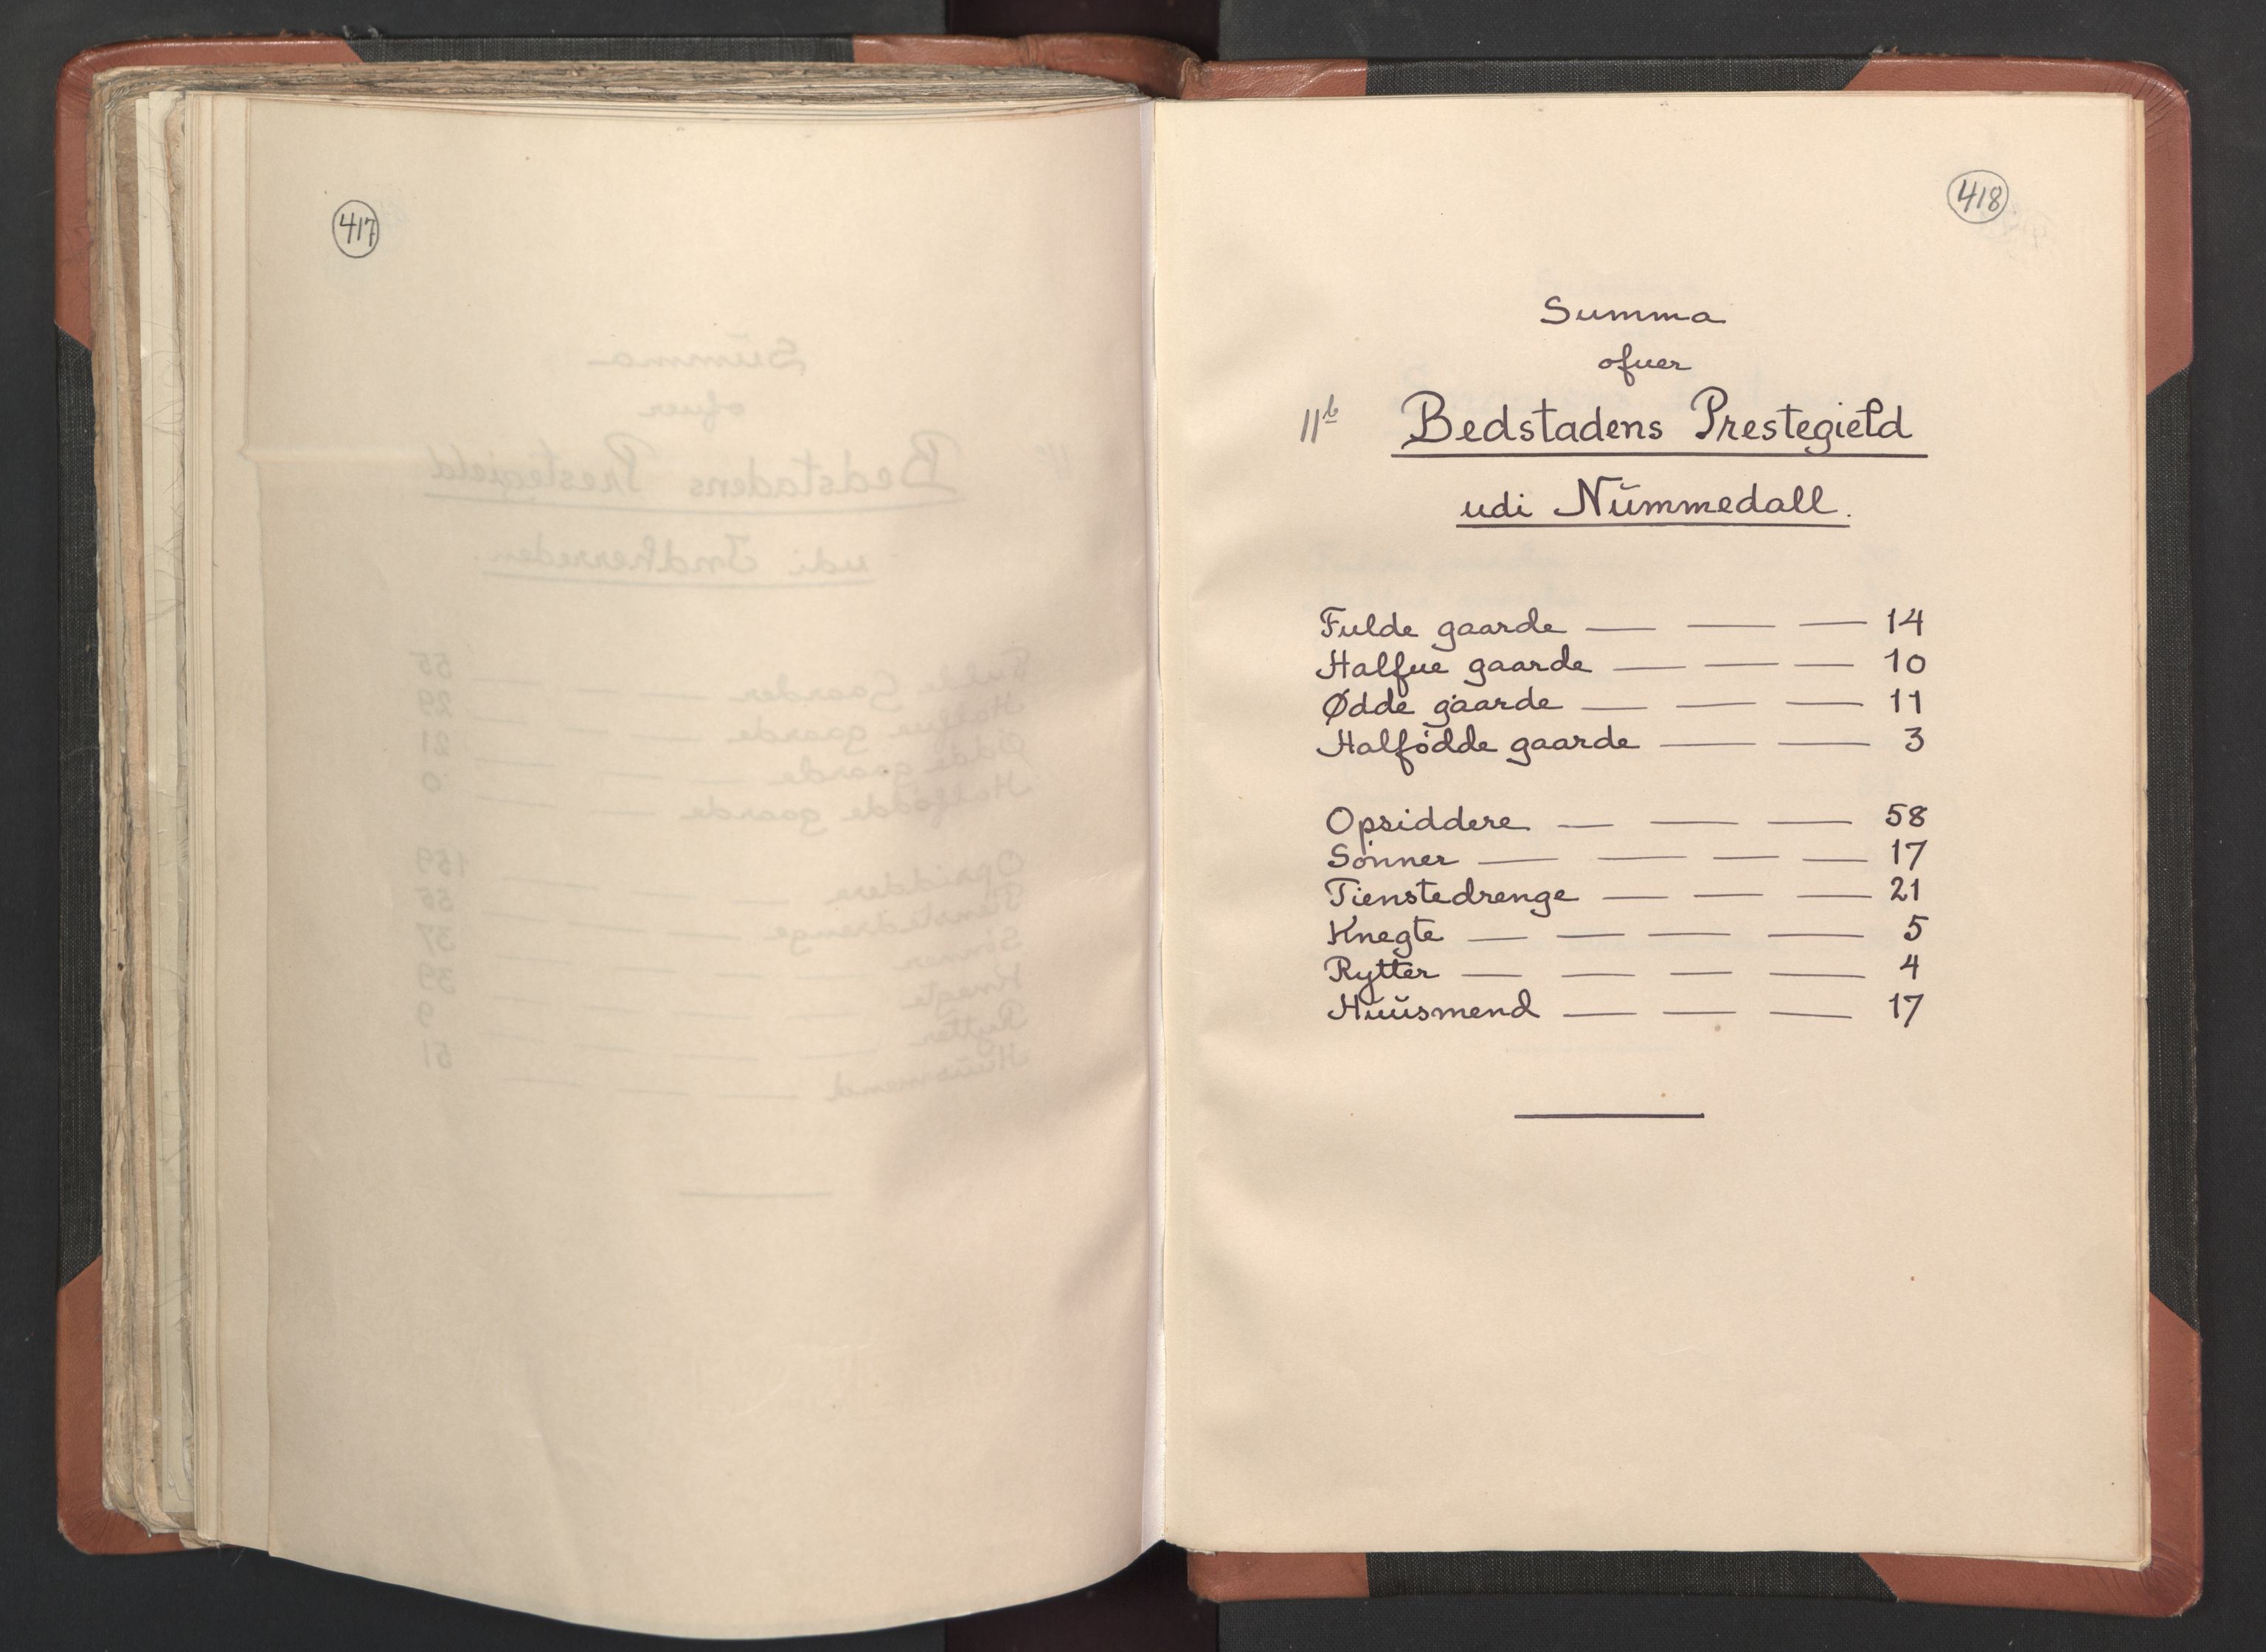 417
418
Summa
ofuer
11b Bedstadens Prestegield
udi Nŭmmedall.
Fulde gaarde — — — 14
Halfue gaarde — — — 10
Ødde gaarde — — — 11
Halfödde gaarde — — 3
Opsiddere — — — 58
Sönner — — — — 17
Tienstedrenge — — — 21
Knegte — — — — 5
Rytter — — — — 4
Huŭsmend — — — 17